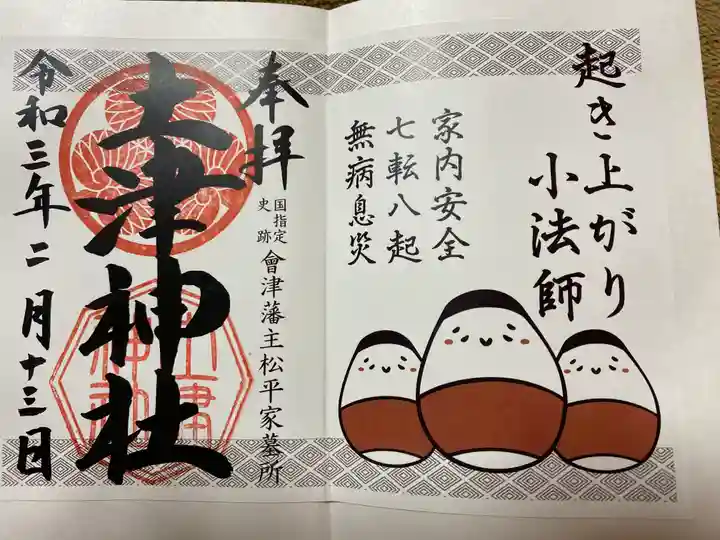 起き上がり
小法師
家内安全
七転八起
無病息災
奉拝
国指定
史跡
會津藩主松平家墓所
土津神社
令和三年二月十三日
土津
神社